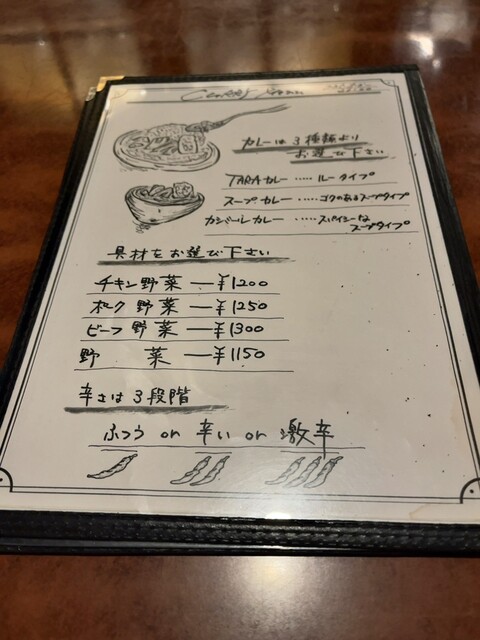 Curry Menu
カレーは3種類より
お選び下さい
TARAカレー ‥‥‥ ルータイプ
スープカレー ‥‥‥ コクのあるスープタイプ
カシミールカレー ‥‥‥ スパイシーな
スープタイプ
具材をお選び下さい
チキン野菜 ー ¥1200
ポーク野菜 ー ¥1250
ビーフ野菜 ー ¥1300
野 菜 ー ¥1150
辛さは3段階
ふつう or 辛い or 激辛